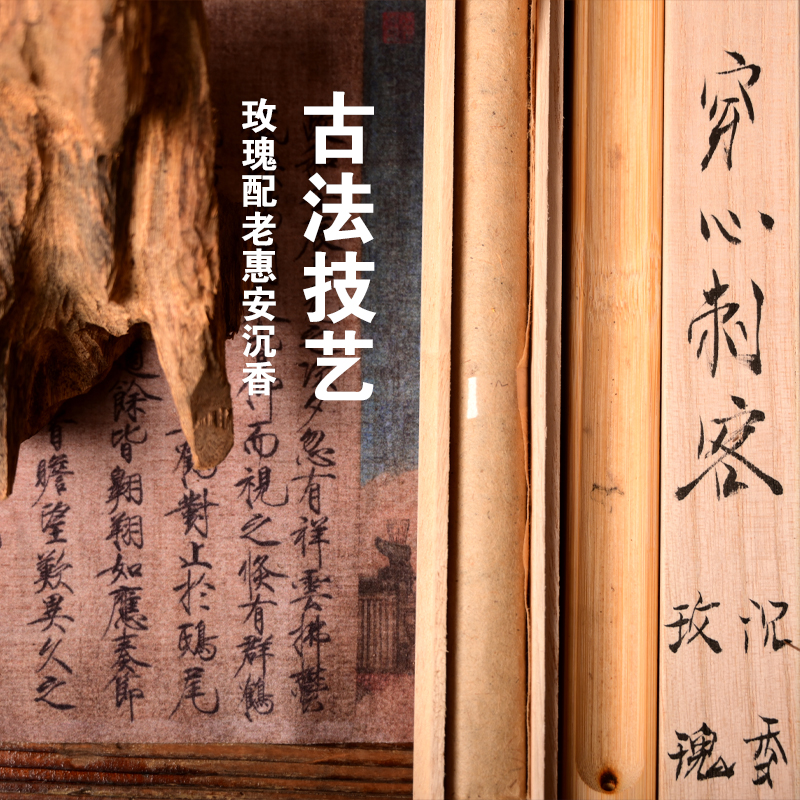 穿心刺客
沉香
玫瑰
古法技艺
玫瑰配老惠安沉香
次夕忽有祥雲拂鬱
而視之倏有群鶴
對止於鴟尾
餘皆翱翔如應奏節
瞻望歎異久之